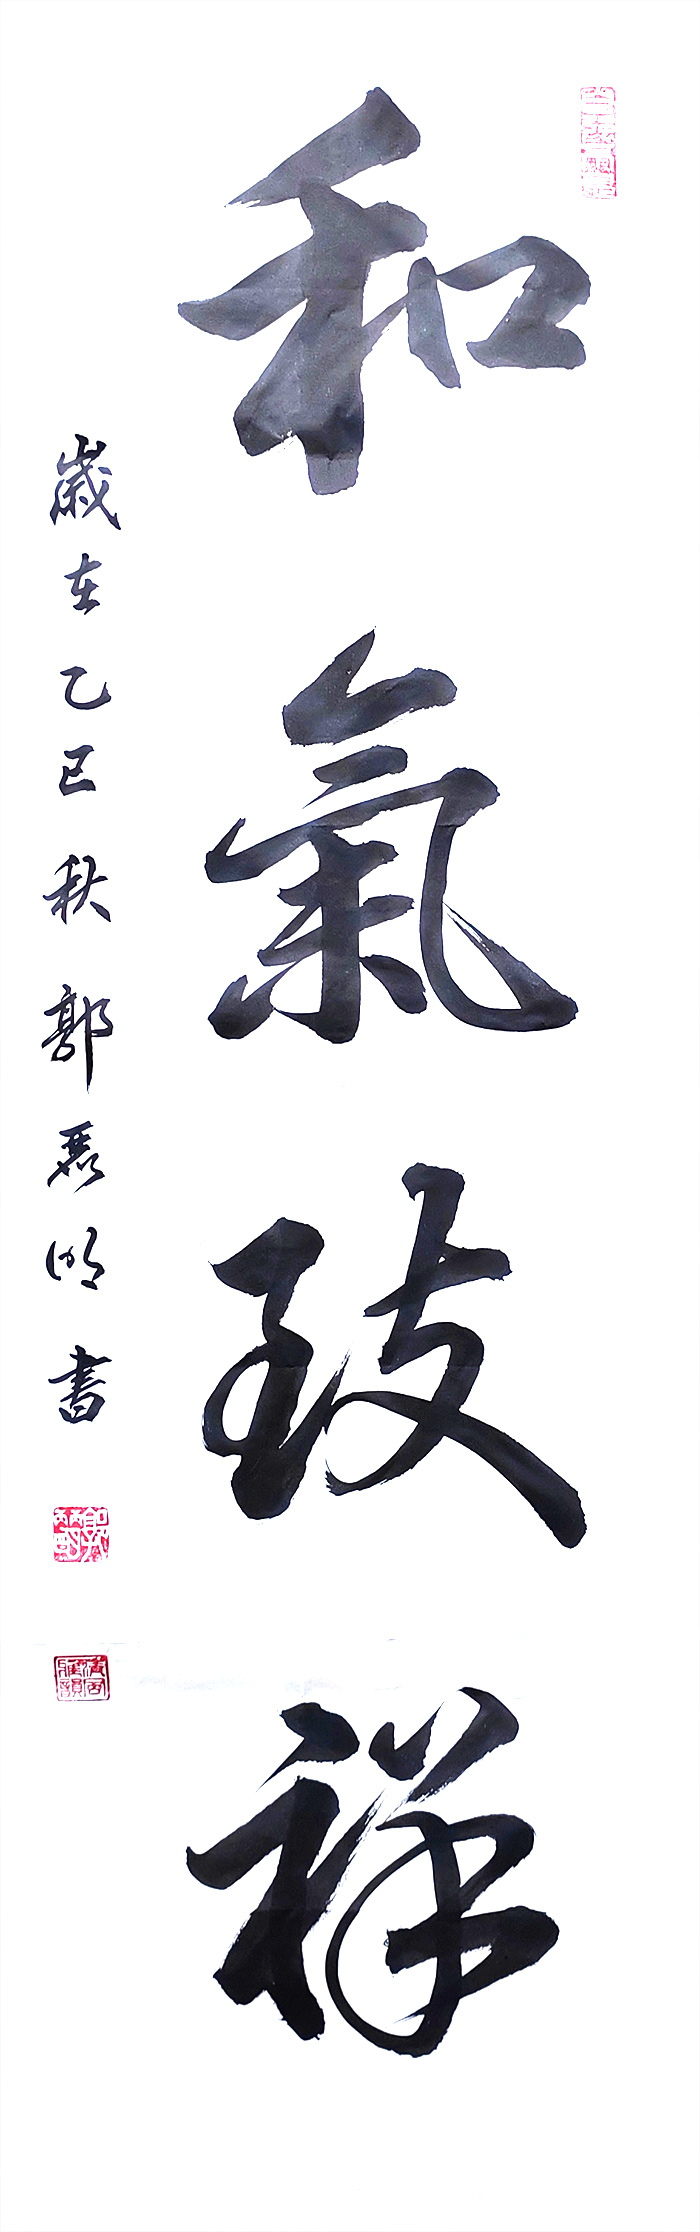 和氣致祥
歲在乙巳秋郭磊明書